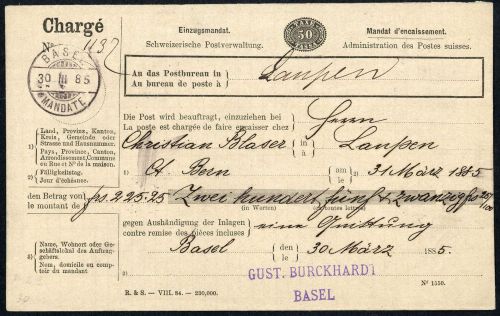 Chargé
Einzugsmandat.
TAXE 50 TAXE
Mandat d'encaissement.
Nº 1132
Schweizerische Postverwaltung.
Administration des Postes suisses.
BASEL
30 III 85
MANDATE
An das Postbureau in
Au bureau de poste à
Laupen
Die Post wird beauftragt, einzuziehen bei
La poste est chargée de faire encaisser chez
Herrn
1) Land, Provinz, Kanton, Kreis, Gemeinde oder Strasse und Hausnummer.
Pays, Province, Canton, Arrondissement, Commune ou Rue et Nº de la maison.
Christian Blaser in à Laupen
2) Fälligkeitstag.
Jour d'échéance.
1) Ct. Bern am le 2) 31 März 1885
den Betrag von
le montant de
frs. 225.25 Zwei hundert fünf & zwanzig frs 25/100
(in Worten)
gegen Aushändigung der Inlagen
contre remise des pièces incluses
eine Quittung
3) Name, Wohnort oder Geschäftslokal des Auftraggebers.
Nom, domicile ou comptoir du mandant
Basel den le 30 März 1885.
3)
GUST. BURCKHARDT
BASEL
R. & S. – VIII. 84. – 230,000.
Nº 1550.